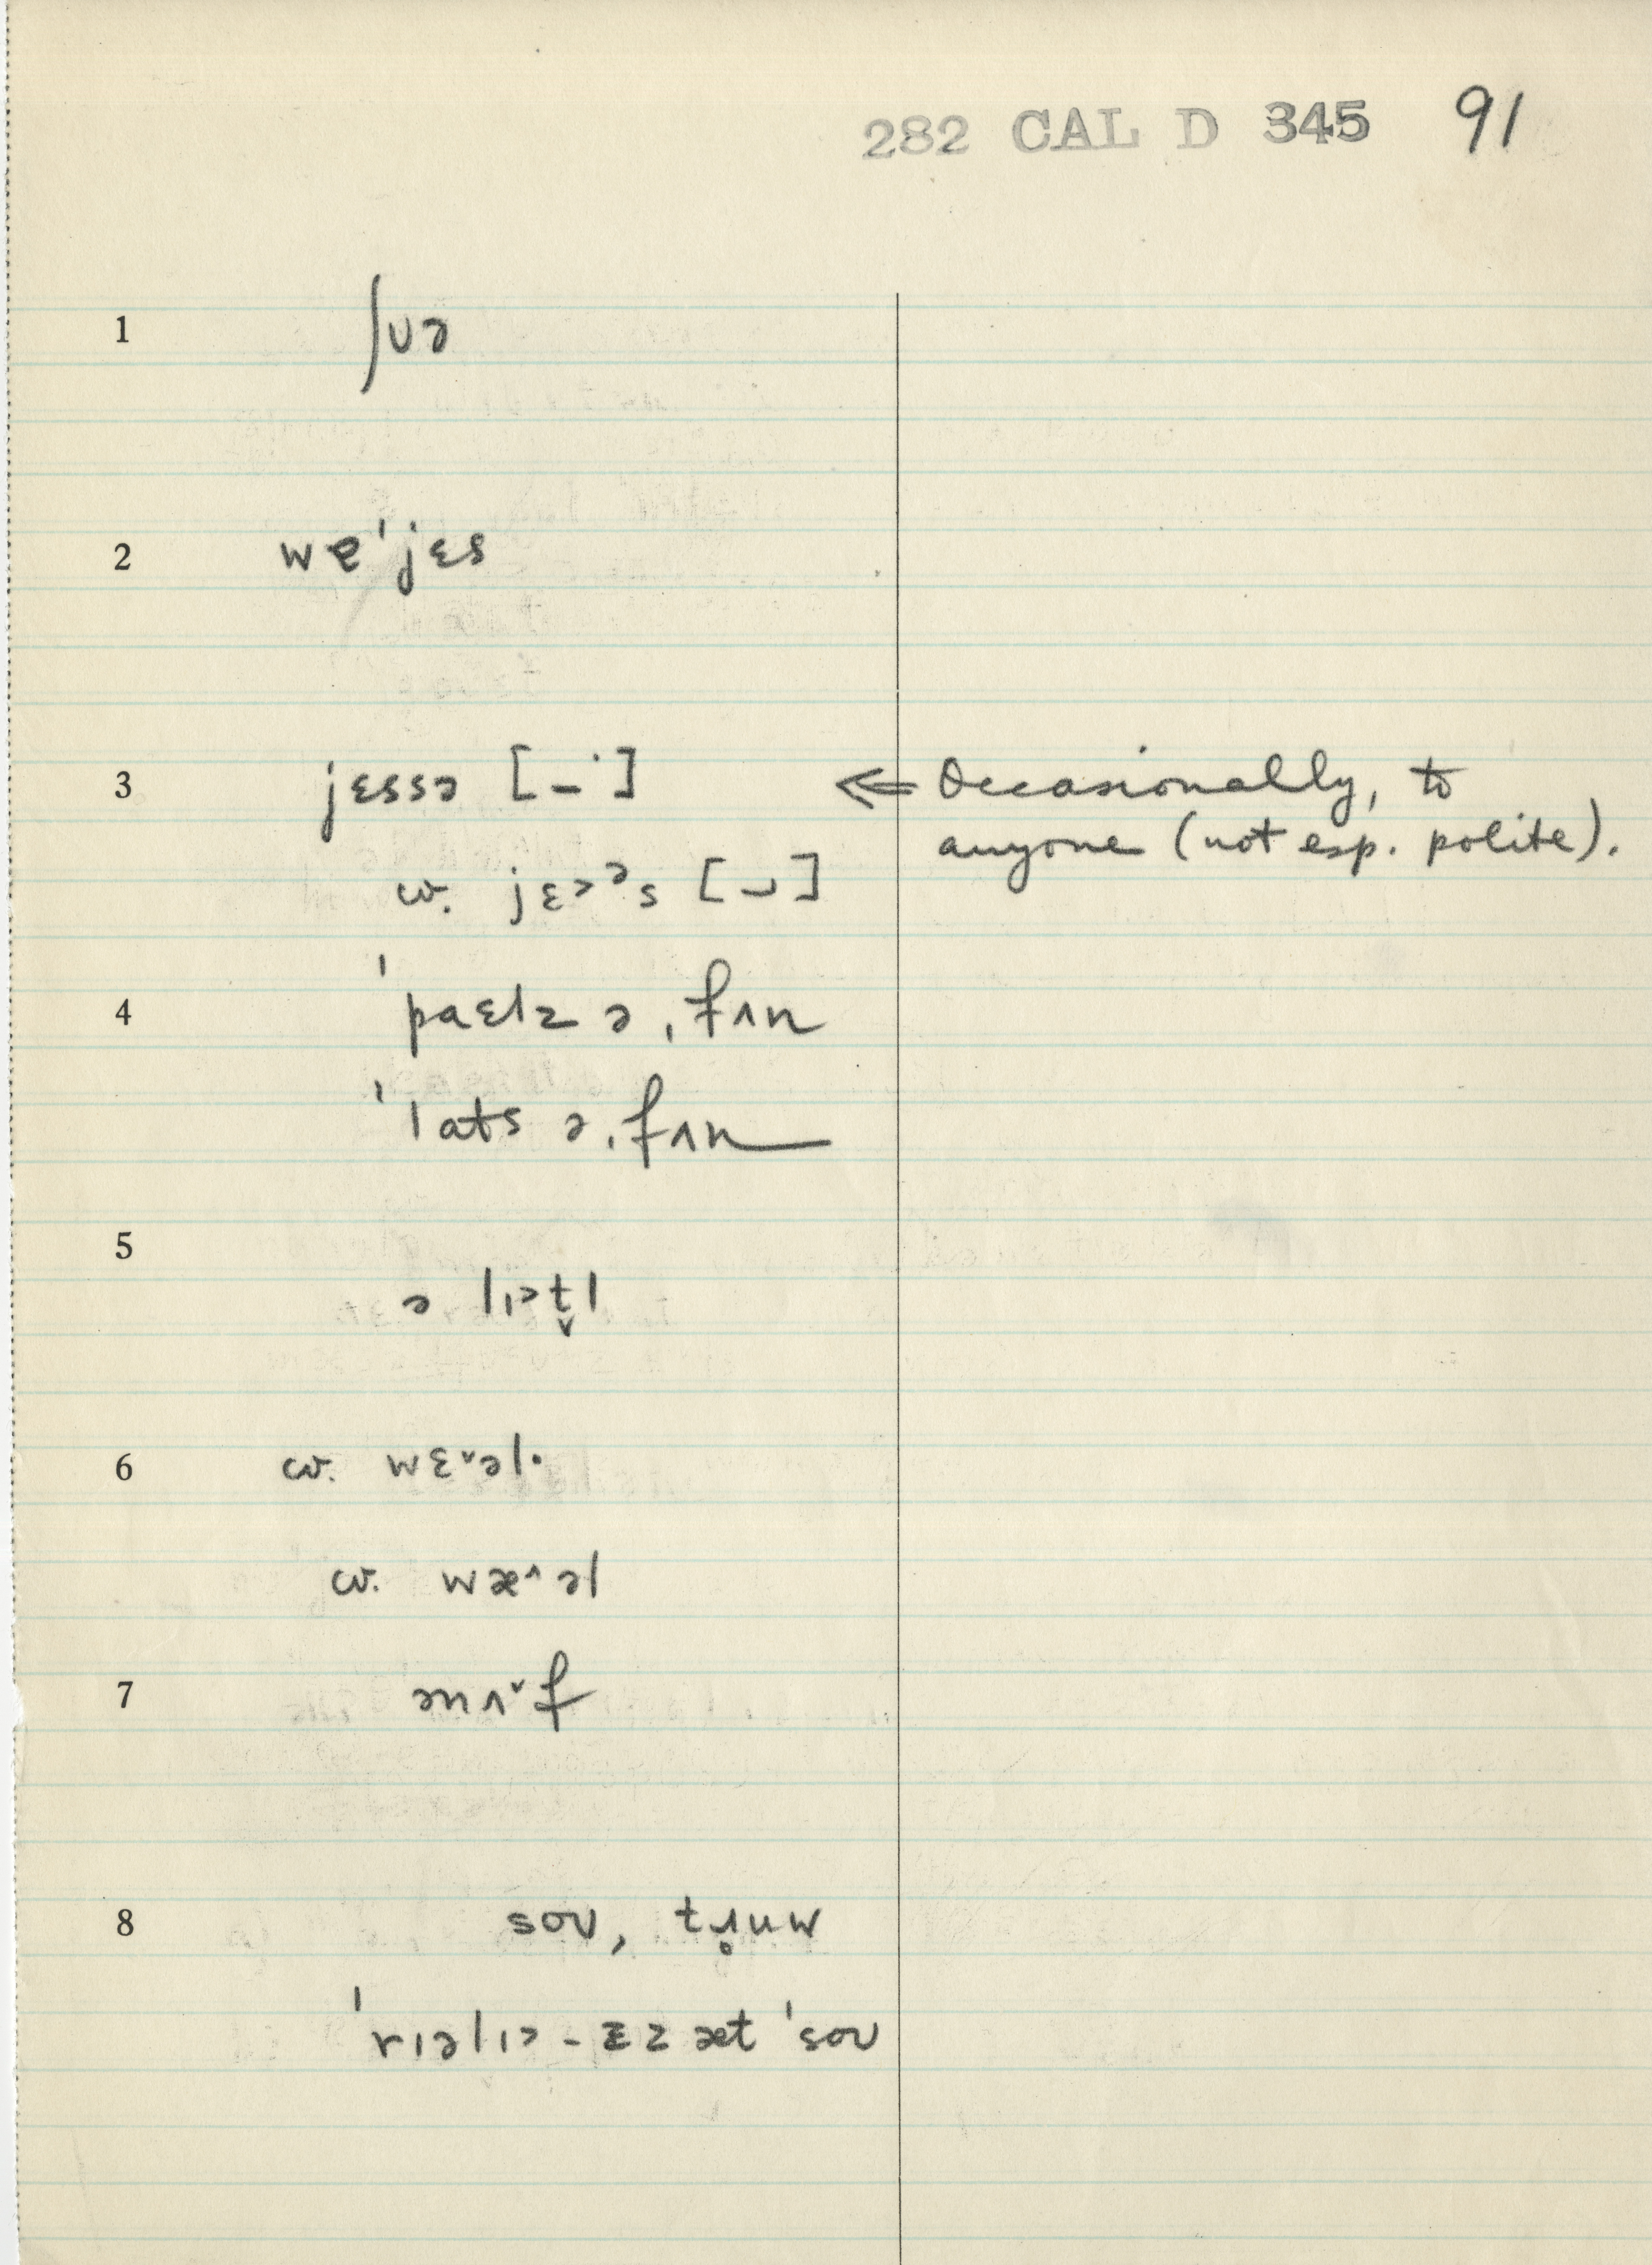 282 CAL D 345 91
1 ʃʊə
2 wɐˈjɛs
3 jɛssə [–˙] ⇐ Occasionally, to
anyone (not esp. polite).
cv. jɛ˃ᵊs [⌣]
4 ˈpaɛlz ə ˌfʌn
ˈlats ə ˌfʌn
5 ə lɪ˃t̬l
6 cv. wɛ˅əl·
cv. wæ˄əl
7 ənʌ˅f
8 soʊ, tɹ̥uw
ˈrɪəlɪ˃ - ɪz æt ˈsoʊ